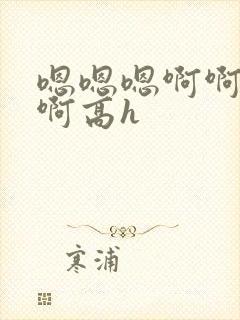 嗯嗯嗯啊啊
啊高h
寒浦